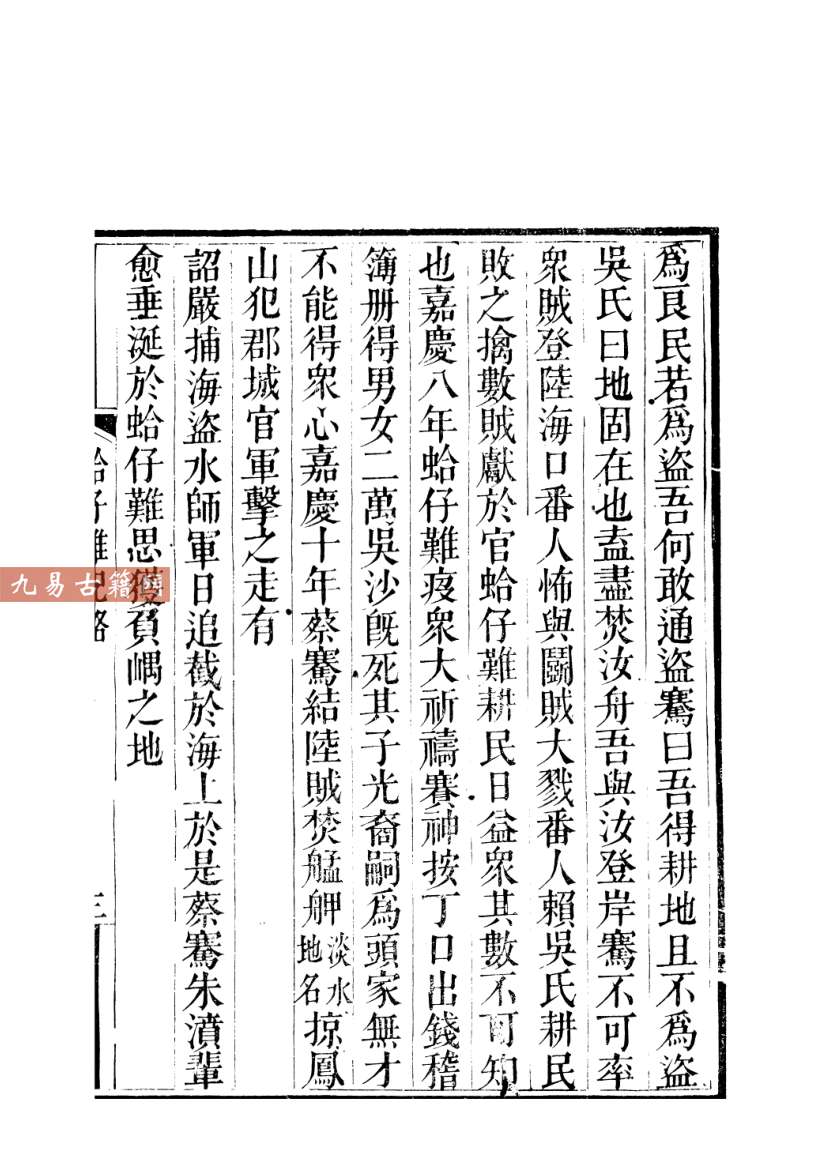 爲良民若爲盜吾何敢通盜騫曰吾得耕地且不爲盜
吳氏曰地固在也盍盡焚汝舟吾與汝登岸騫不可率
衆賊登陸海口番人怖與鬭賊大戮番人賴吳氏耕民
敗之擒數賊獻於官蛤仔難耕民日益衆其數不可知
也嘉慶八年蛤仔難疫衆大祈禱賽神按丁口出錢稽
簿册得男女二萬吳沙旣死其子光裔嗣爲頭家無才
不能得衆心嘉慶十年蔡騫結陸賊焚艋舺淡水地名掠鳳
山犯郡城官軍擊之走有
詔嚴捕海盜水師軍日追截於海上於是蔡騫朱濆輩
愈垂涎於蛤仔難思獲負嵎之地
蛤仔難紀略
三
九易古籍網